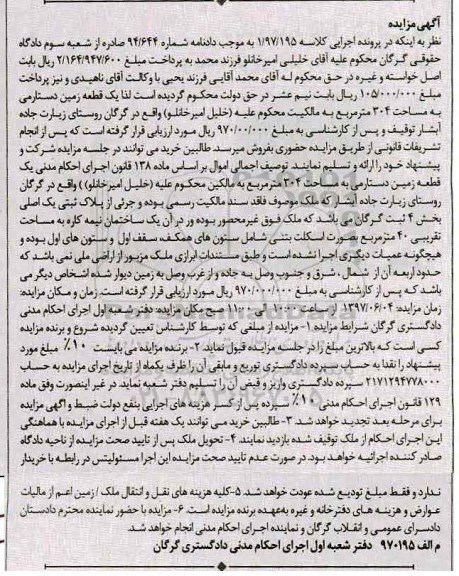 آگهی مزایده
نظر به اینکه در پرونده اجرایی کلاسه ۱/۹۷/۱۹۵ به موجب دادنامه شماره ۹۴/۶۴۴ صادره از شعبه سوم دادگاه
حقوقی گرگان محکوم علیه آقای خلیلی امیرخانلو فرزند محمد به پرداخت مبلغ ۲/۱۶۴/۹۴۷/۶۰۰ ریال بابت
اصل خواسته و غیره در حق محکوم له آقای محمد آقایی فرزند یحیی با وکالت آقای ناهیدی و نیز پرداخت
مبلغ ۱۰۵/۰۰۰/۰۰۰ ریال بابت نیم عشر در حق دولت محکوم گردیده است لذا یک قطعه زمین دستارمی
به مساحت ۳۰۴ مترمربع به مالکیت محکوم علیه (خلیل امیرخانلو) واقع در گرگان روستای زیارت جاده
آبشار توقیف و پس از کارشناسی به مبلغ ۹۷۰/۰۰۰/۰۰۰ ریال مورد ارزیابی قرار گرفته است که پس از انجام
تشریفات قانونی از طریق مزایده حضوری بفروش میرسد. طالبین خرید می توانند در جلسه مزایده شرکت و
پیشنهاد خود را ارائه و تسلیم نمایند. توصیف اجمالی اموال بر اساس ماده ۱۳۸ قانون اجرای احکام مدنی یک
قطعه زمین دستارمی به مساحت ۳۰۴ مترمربع به مالکین محکوم علیه (خلیل امیرخانلو) ) واقع در گرگان
روستای زیارت جاده آبشار که ملک موصوف فاقد سند مالکیت رسمی بوده و جزئی از پلاک ثبتی یک اصلی
بخش ۴ ثبت گرگان می باشد که ملک فوق غیرمحصور بوده ور در آن یک ساختمان نیمه کاره به مساحت
تقریبی ۴۰ مترمربع بصورت اسکلت بتنی شامل ستون های همکف، سقف اول و ستون های اول بوده و
هیچگونه عمیات دیگری اجرا نشده است و طبق مستندات ابرازی ملک مزبور از اراضی ملی نمی باشد که
حدود اربعه آن از شمال، شرق و جنوب وصل به جاده و از غرب وصل به زمین دیوار شده اشخاص دیگر می
باشد که پس از کارشناسی به مبلغ ۹۷۰/۰۰۰/۰۰۰ ریال مورد ارزیابی قرار گرفته است. زمان و مکان مزایده:
زمان مزایده: ۱۳۹۷/۰۶/۰۴ از ساعت الی ۱۱:۰۰ صبح مکان مزایده: دفتر شعبه اول اجرای احکام مدنی
دادگستری گرگان شرایط مزایده ۱- مزایده از مبلغی که توسط کارشناس تعیین گردیده شروع و برنده مزایده
کسی است که بالاترین مبلغ را در جلسه مزایده قبول نماید. ۲- برنده مزایده می بایست ۱۰٪ مبلغ مورد
پیشنهاد را نقدا به حساب سپرده دادگستری توریع و مابقی آن را ظرف یکماه از تاریخ اجرای مزایده به حساب
۲۱۷۱۲۹۴۷۷۸۰۰۰ سپرده دادگستری واریز و قبض آن را تسلیم دفتر شعبه نماید. در غیر اینصورت وفق ماده
۱۲۹ قانون اجرای احکام مدنی ۱۰٪ سپرده پس از کسر هزینه های اجرایی بنفع دولت ضبط و آگهی مزایده
برای مرحله بعد تجدید خواهد شد. ۳- طالبین خرید می توانند یک هفته قبل از اجرای مزایده با هماهنگی
این اجرای احکام از ملک توقیف شده بازدید نمایند. ۴- تحویل ملک پس از تایید صحت مزایده از ناحیه دادگاه
صادر کننده اجرائیه خواهد بود. در صورت عدم تایید صحت مزایده این اجرا مسئولیتی در رابطه با خریدار
ندارد و فقط مبلغ تودیع شده عودت خواهد شد. ۵-کلیه هزینه های نقل و انتقال ملک / زمین اعم از مالیات
عوارض و هزینه های دفترخانه و غیره به عهده برنده مزایده است. ۶- مزایده با حضور نماینده محترم دادستان
دادسرای عمومی و انقلاب گرگان و نماینده اجرای احکام مدنی انجام خواهد شد.
م الف ۹۷۰۱۹۵ دفتر شعبه اول اجرای احکام مدنی دادگستری گرگان